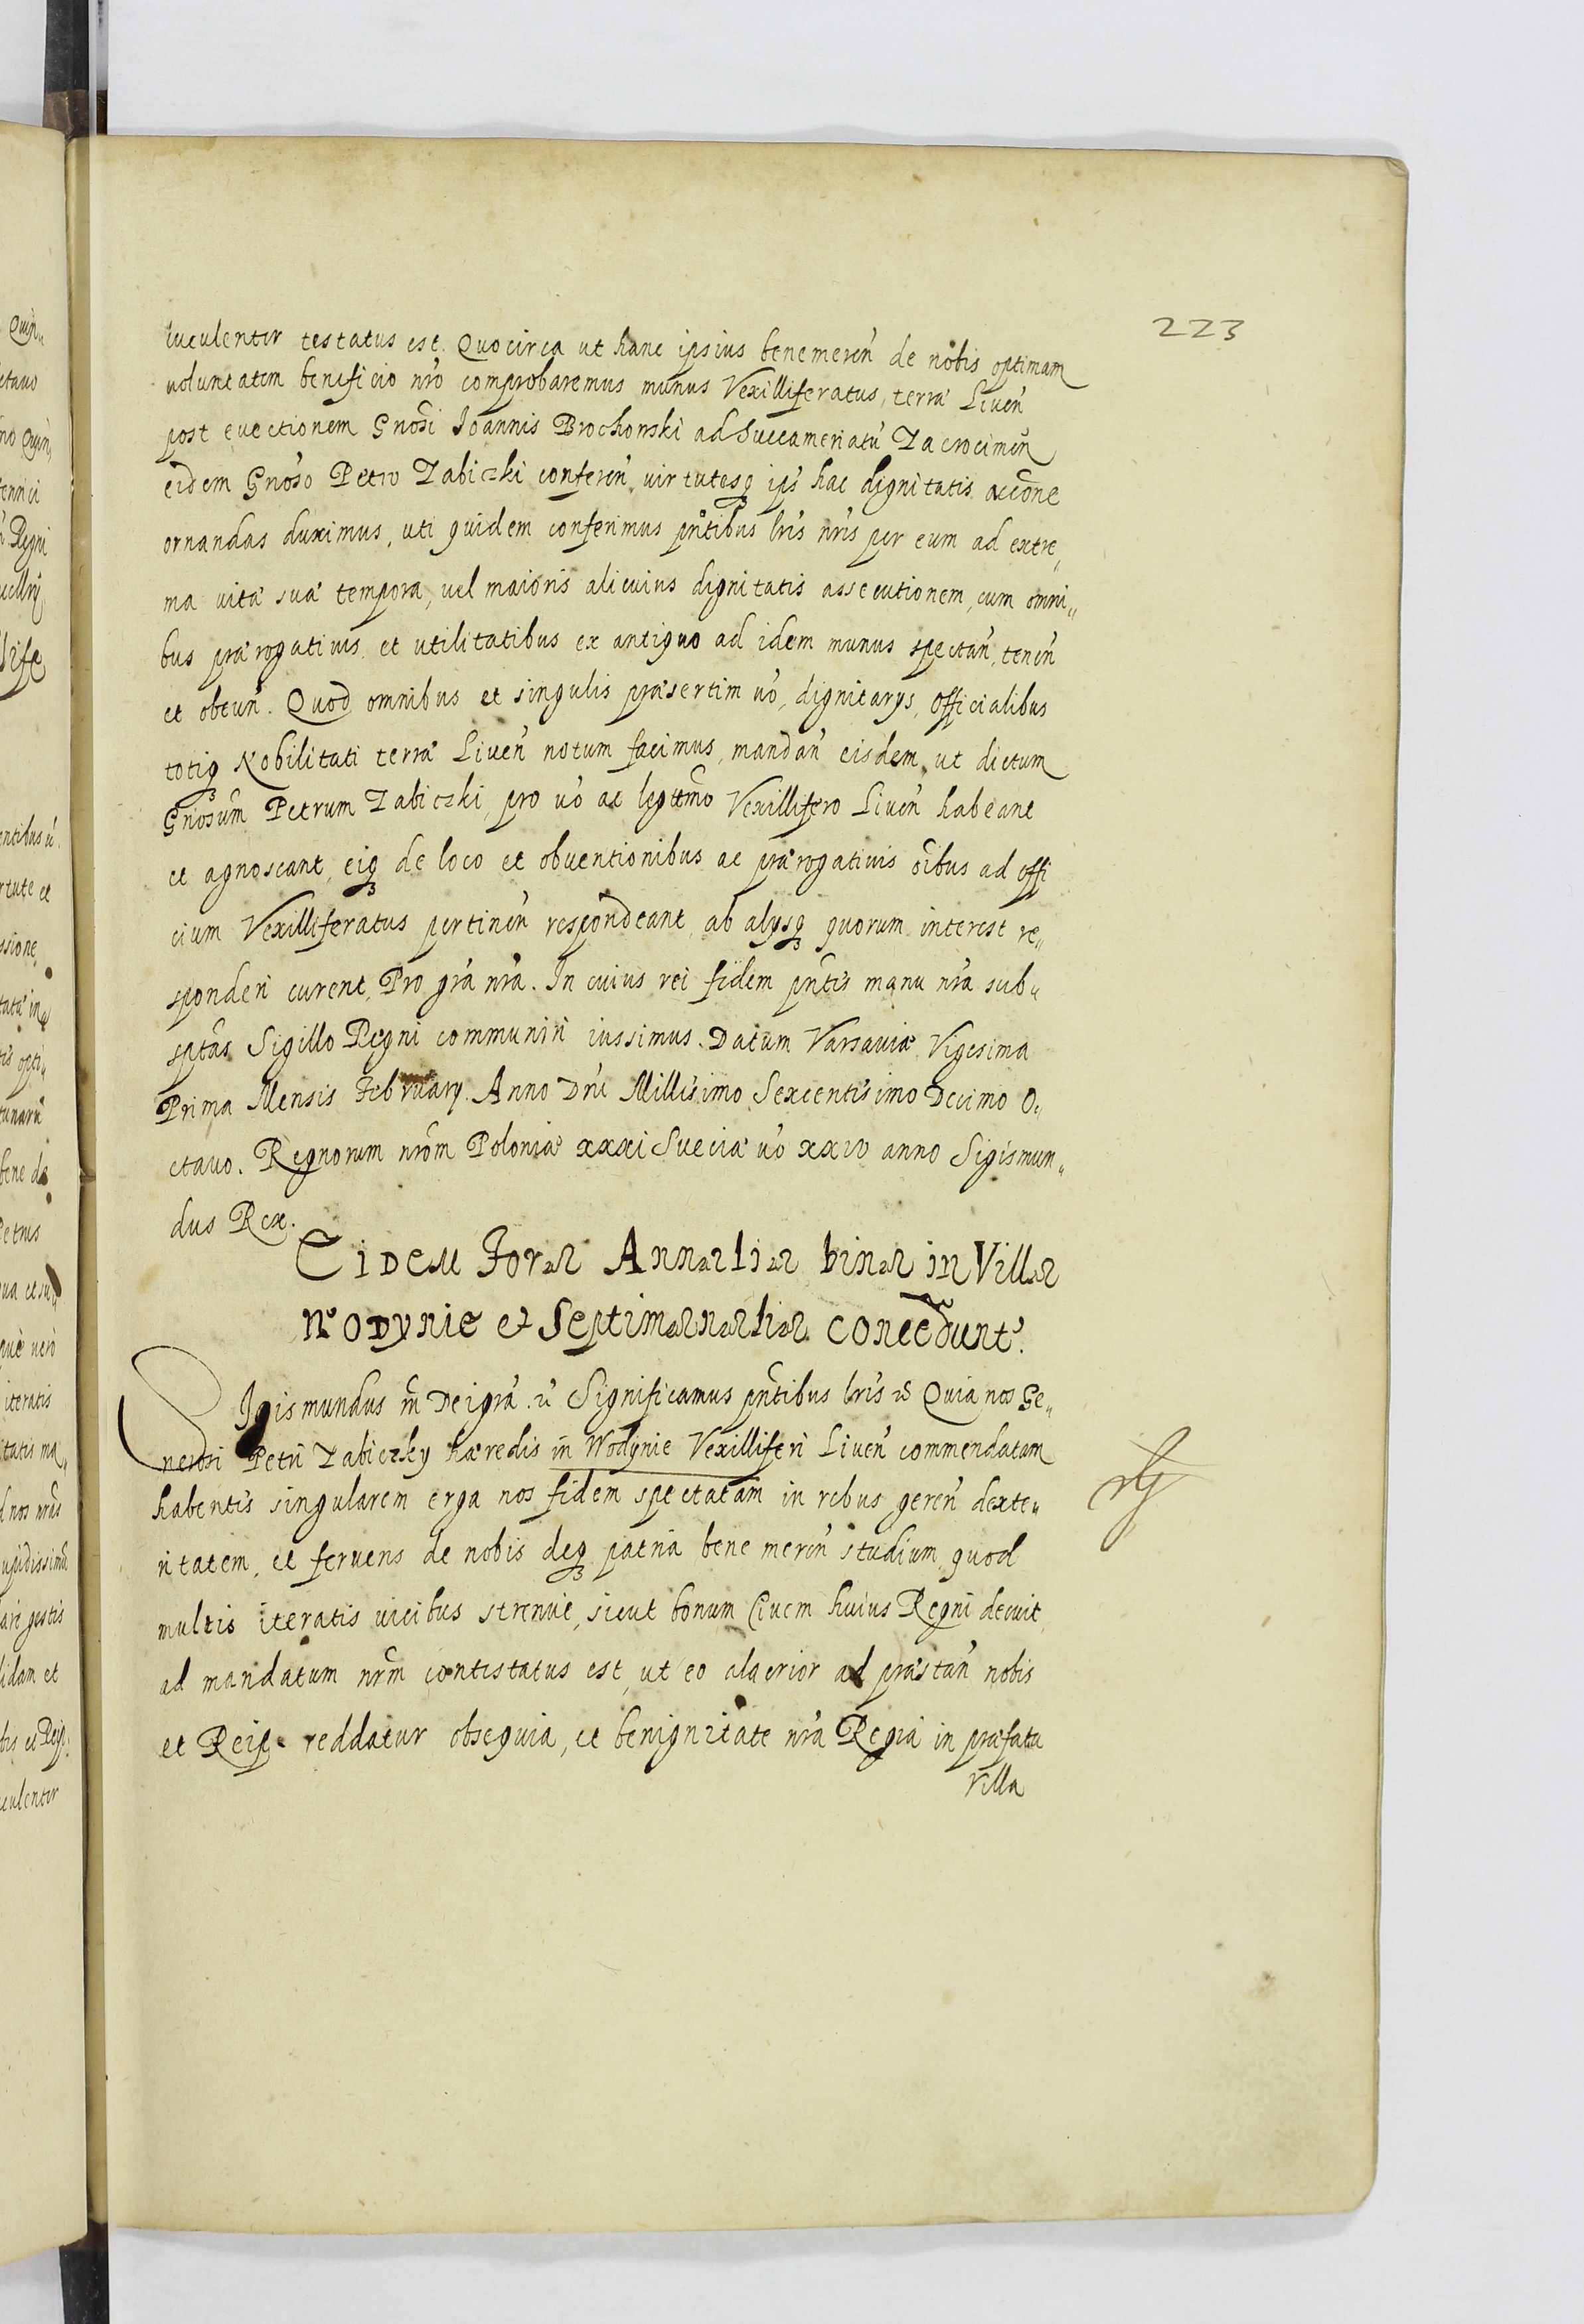 223
luculenter testatus est. Quocirca ut hanc ipsius benemeren̄ de nobis optimam
voluntatem beneficio nr̄o comprobaremus munus Vexilliferatus, terræ Liven̄
post evectionem Gnōsi Ioannis Brochowski ad Succameriatū Zacrocimen̄
eidem Gnōso Petro Zabiczki conferen̄, virtutesq̨ ips̄ hac dignitatis acc̄one
ornandas duximus, uti quidem conferimus pn̄tibus lr̄is nr̄is per eum ad extre„
ma vitæ suæ tempora, vel maioris alicuius dignitatis assecutionem, cum omni„
bus prærogativis et utilitatibus ex antiquo ad idem munus spectan̄, tenen̄
et obtin̄. Quod omnibus et singulis præsertim vō, dignitarys, Officialibus
totiq̨ Nobilitati terræ Liven̄ notum facimus, mandan̄ eisdem, ut dictum
Gnōsum Petrum Zabiczki, pro vō ac legitīmo Vexillifero Liven̄ habeant
et agnoscant, eiq̨ de loco et obventionibus ac prærogativis ōibus ad offi
cium Vexilliferatus pertinen̄ respondeant, ab alysq̨ quorum interest re„
sponderi curent, Pro gr̄a nr̄a. In cuius rei fidem pn̄tis manu nr̄a sub„
sptas Sigillo Regni communiri iussimus. Datum Varsaviæ Vigesima
Prima Mensis February. Anno Dn̄i Millisimo Sexcentisimo Decimo O„
ctavo. Regnorum nr̄om Poloniæ xxxi Sueciæ vō xxiv anno Sigismun„
dus Rex.
Eidem Fora Annalia bina in Villa
Wodynie et Septimanalia concedunt̄.
SIgismundus III Dei gr̄a. Significamus pn̄tibus lr̄is Quia nos Ge„
nerosi Petri Zabiczky hæredis in Wodynie Vexilliferi Liven̄ commendatam
habentis singularem erga nos fidem spectatam in rebus geren̄ dexte„
ritatem, et fervens de nobis deq̨ patria bene meren̄ studium, quod
multis iteratis vicibus strenue, sicut bonum Civem huius Regni decuit,
ad mandatum nr̄m contestatus est, ut eo alacrior ad præstan̄ nobis
et Reip. reddatur obsequia, et benignitate nr̄a Regia in præfata
Villa